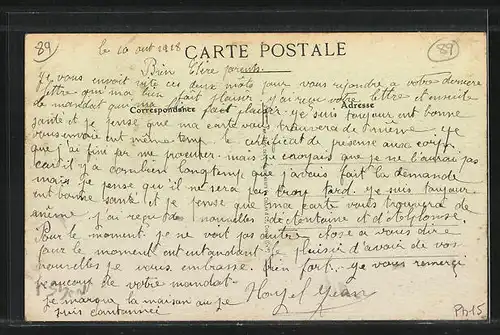 89
le 10 out 1918
CARTE POSTALE
89
Bien chère parents
Je vous envoit vite ces deux mots pour vous répondre a votre dernière
lettre qui m'a bien fait plaisir. j'ai reçu votre lettre et ensuite
de mandat qui m'a fait plaisir. je suis toujour ent bonne
Correspondance
Adresse
santé et je pense que ma carte vous trouvera de même. je
vous envoie ent même temp le certificat de presense aux corp
que j'ai fini par me procurer. mais je croyais que je ne l'aurai pas
cart il y a combien longtemp que j'avais fait la demande
mais je pense qu'il ne sera pas trop tard. je suis toujour
ent bonne santé et je pense que ma carte vous trouvera de
même. j'ai reçu des nouvelles de Antoine et d'Alphonse.
Pour le moment je ne voit pas autre chose a vous dire
pour le moment ent entendant le plaisir d'avoir de vos
nouvelles je vous embrasse bien fort. je vous remerci
beaucoup de votre mandat.
je marque la maison au je
suis cantonnei
Jean
Ph15